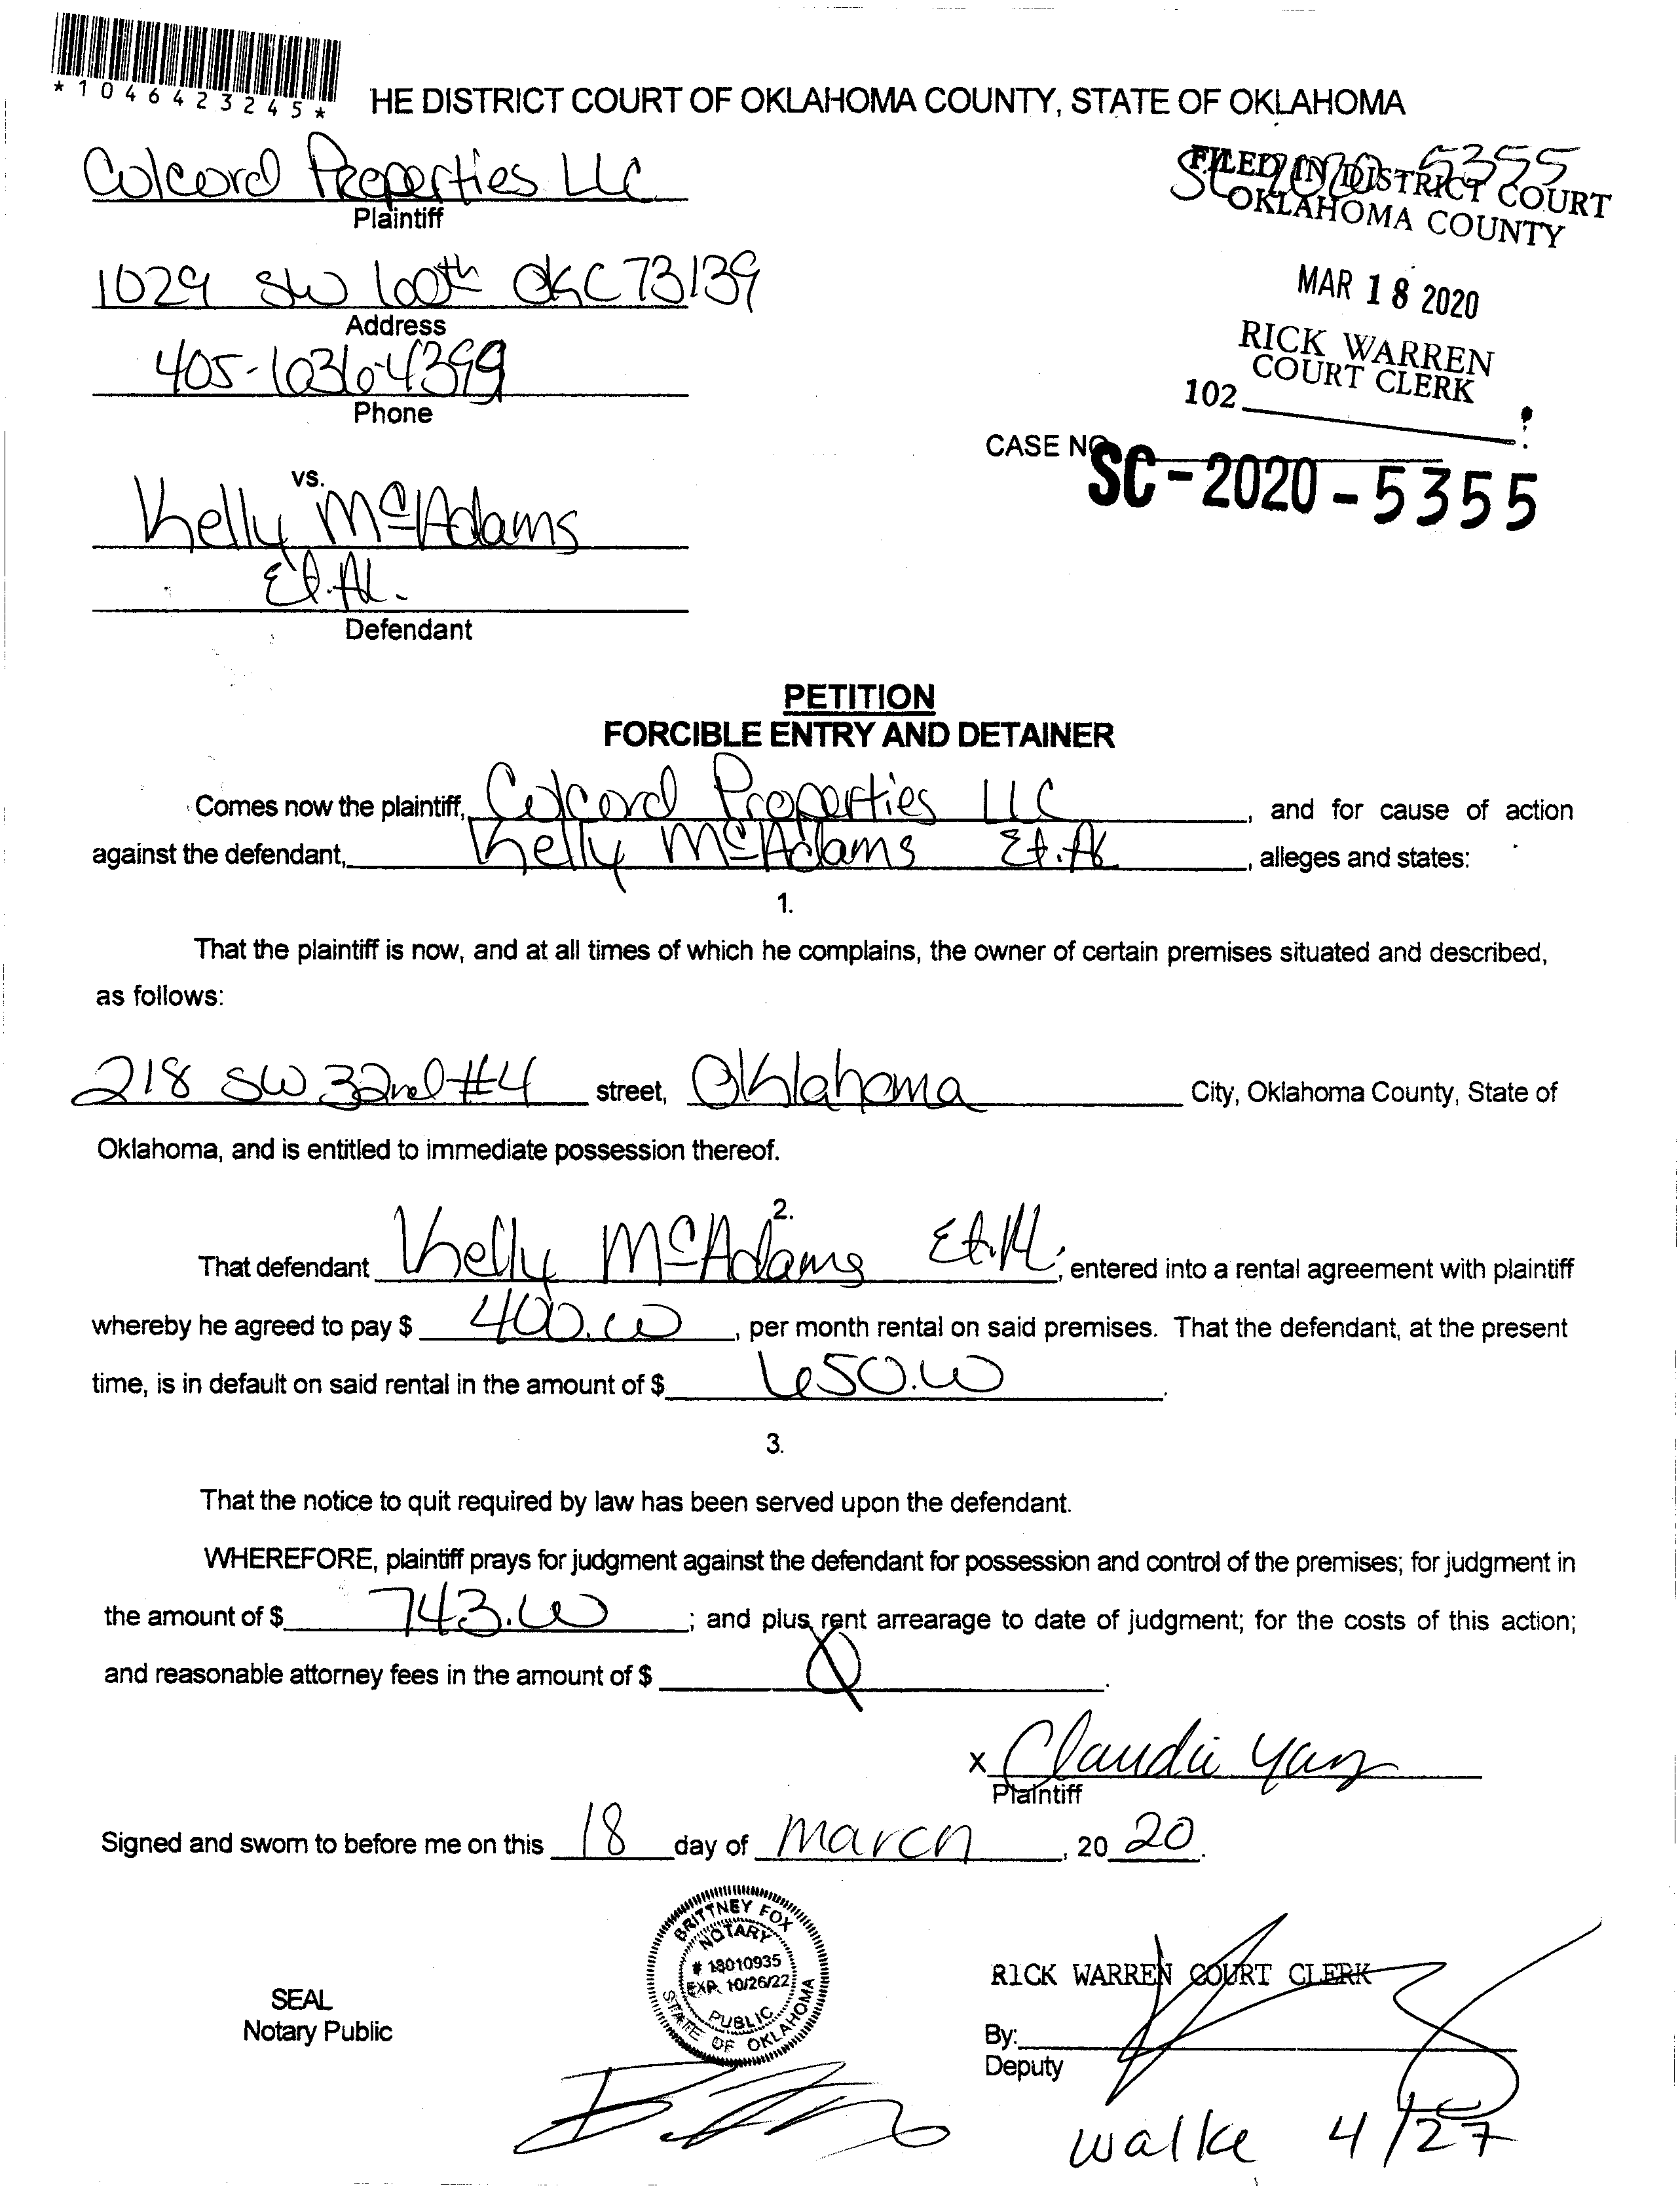 *1046423245*
HE DISTRICT COURT OF OKLAHOMA COUNTY, STATE OF OKLAHOMA
Colcord Properties LLC
Plaintiff
SC 2020 5355
FILED IN DISTRICT COURT
OKLAHOMA COUNTY
1029 SW 100th OKC 73139
Address
MAR 18 2020
405-636-4399
Phone
RICK WARREN
COURT CLERK
102
CASE NO.
SC-2020-5355
vs.
Kelly McAdams
Et. Al.
Defendant
PETITION
FORCIBLE ENTRY AND DETAINER
Comes now the plaintiff, Colcord Properties LLC, and for cause of action
against the defendant, Kelly McAdams Et. Al, alleges and states:
1.
That the plaintiff is now, and at all times of which he complains, the owner of certain premises situated and described,
as follows:
218 SW 32nd #4 street, Oklahoma City, Oklahoma County, State of
Oklahoma, and is entitled to immediate possession thereof.
2.
That defendant Kelly McAdams Et. Al., entered into a rental agreement with plaintiff
whereby he agreed to pay $ 400.00, per month rental on said premises. That the defendant, at the present
time, is in default on said rental in the amount of $ 650.00.
3.
That the notice to quit required by law has been served upon the defendant.
WHEREFORE, plaintiff prays for judgment against the defendant for possession and control of the premises; for judgment in
the amount of $ 743.00; and plus rent arrearage to date of judgment; for the costs of this action;
and reasonable attorney fees in the amount of $ 0.
x Claudii Yanz
Plaintiff
Signed and sworn to before me on this 18 day of March, 2020.
BRITTNEY FOX
NOTARY
# 18010935
EXP. 10/26/22
PUBLIC
STATE OF OKLAHOMA
SEAL
Notary Public
RICK WARREN COURT CLERK
By:
Deputy
walke 4/27